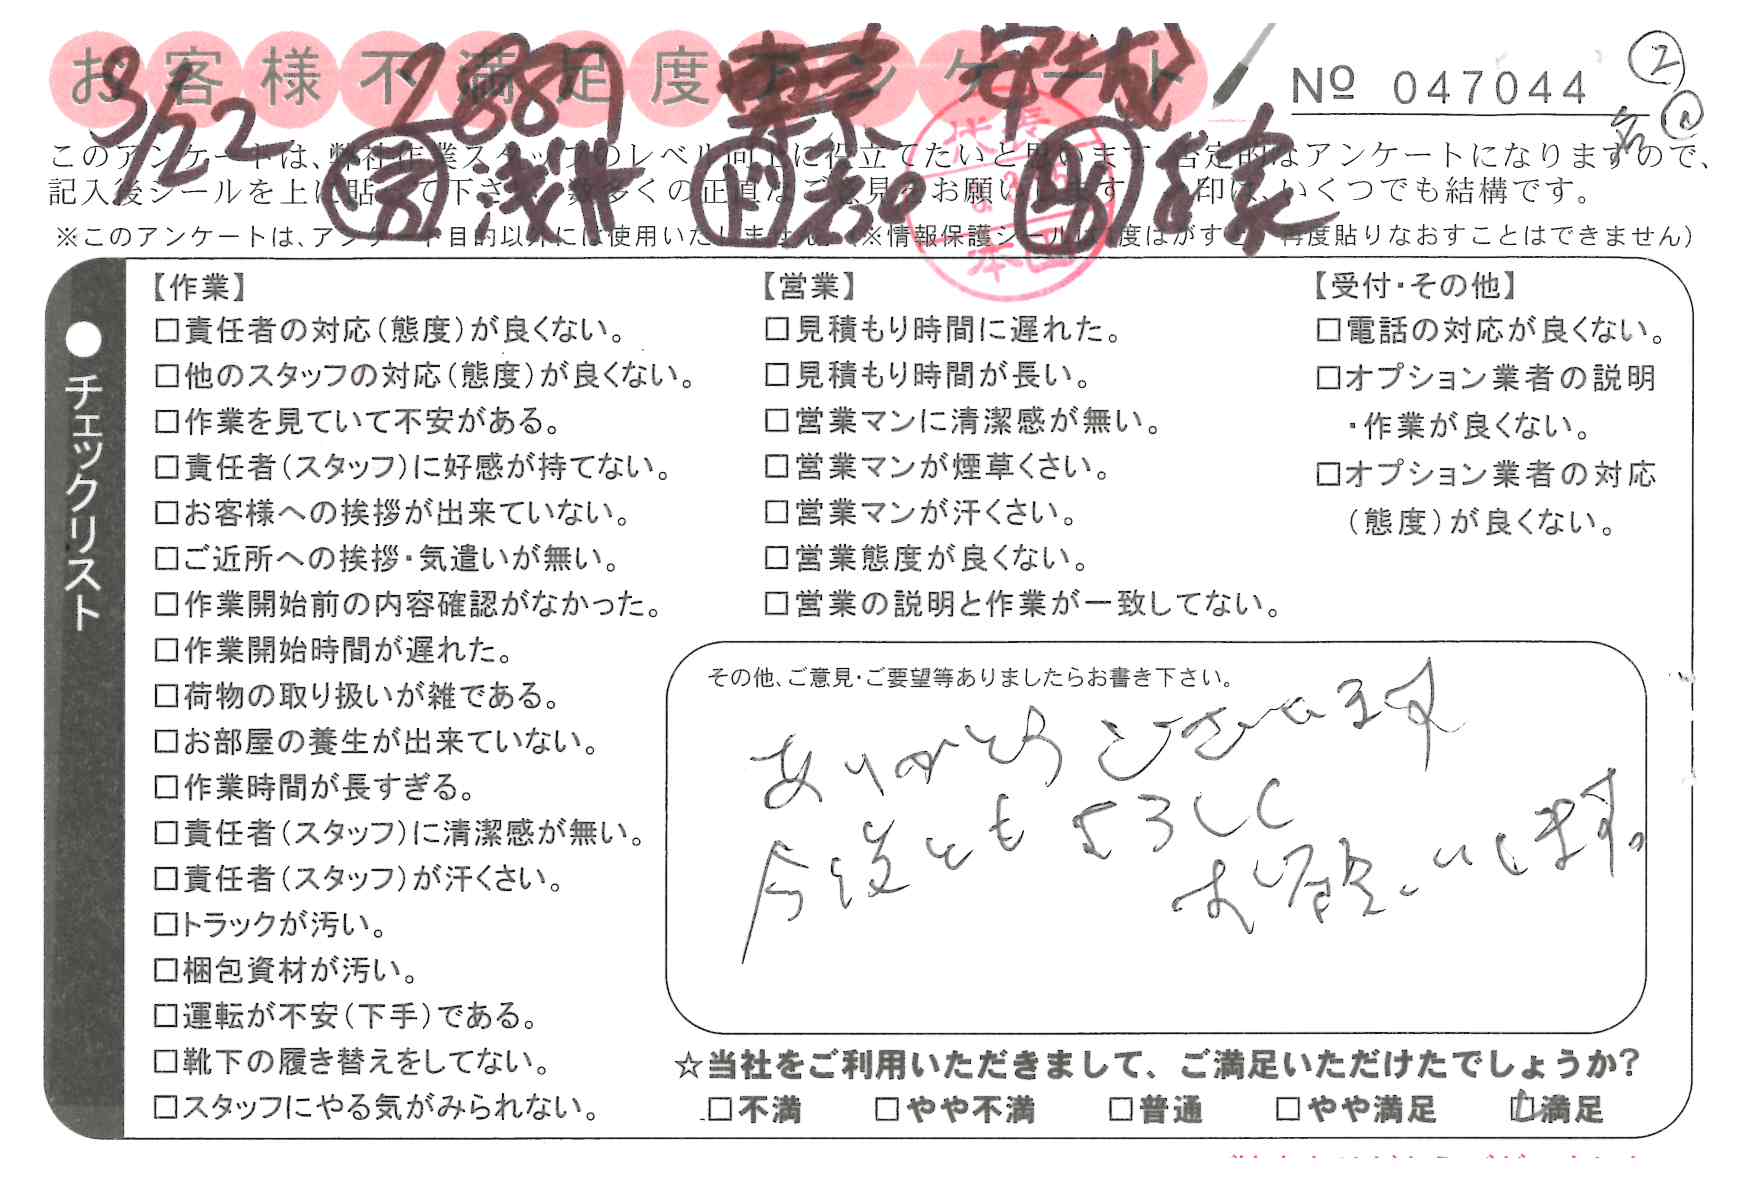 お客様不満足度アンケート
3/22 2887
Nº 047044
②
名
このアンケートは、弊社作業スタッフのレベル向上に役立てたいと思います。否定的なアンケートになりますので、
記入後シールを上に貼って下さい。数多くの正直なご意見をお願いします。 印は、いくつでも結構です。
※このアンケートは、アンケート目的以外には使用いたしません。(※情報保護シールは1度はがすと、再度貼りなおすことはできません)
営 浅井 ド
●チェックリスト
【作業】
□責任者の対応(態度)が良くない。
□他のスタッフの対応(態度)が良くない。
□作業を見ていて不安がある。
□責任者(スタッフ)に好感が持てない。
□お客様への挨拶が出来ていない。
□ご近所への挨拶・気遣いが無い。
□作業開始前の内容確認がなかった。
□作業開始時間が遅れた。
□荷物の取り扱いが雑である。
□お部屋の養生が出来ていない。
□作業時間が長すぎる。
□責任者(スタッフ)に清潔感が無い。
□責任者(スタッフ)が汗くさい。
□トラックが汚い。
□梱包資材が汚い。
□運転が不安(下手)である。
□靴下の履き替えをしてない。
□スタッフにやる気がみられない。
【営業】
□見積もり時間に遅れた。
□見積もり時間が長い。
□営業マンに清潔感が無い。
□営業マンが煙草くさい。
□営業マンが汗くさい。
□営業態度が良くない。
□営業の説明と作業が一致してない。
【受付・その他】
□電話の対応が良くない。
□オプション業者の説明
・作業が良くない。
□オプション業者の対応
(態度)が良くない。
その他、ご意見・ご要望等ありましたらお書き下さい。
ありがとうございます
今後ともよろしく
お願いします。
☆当社をご利用いただきまして、ご満足いただけたでしょうか?
□不満 □やや不満 □普通 □やや満足 □満足